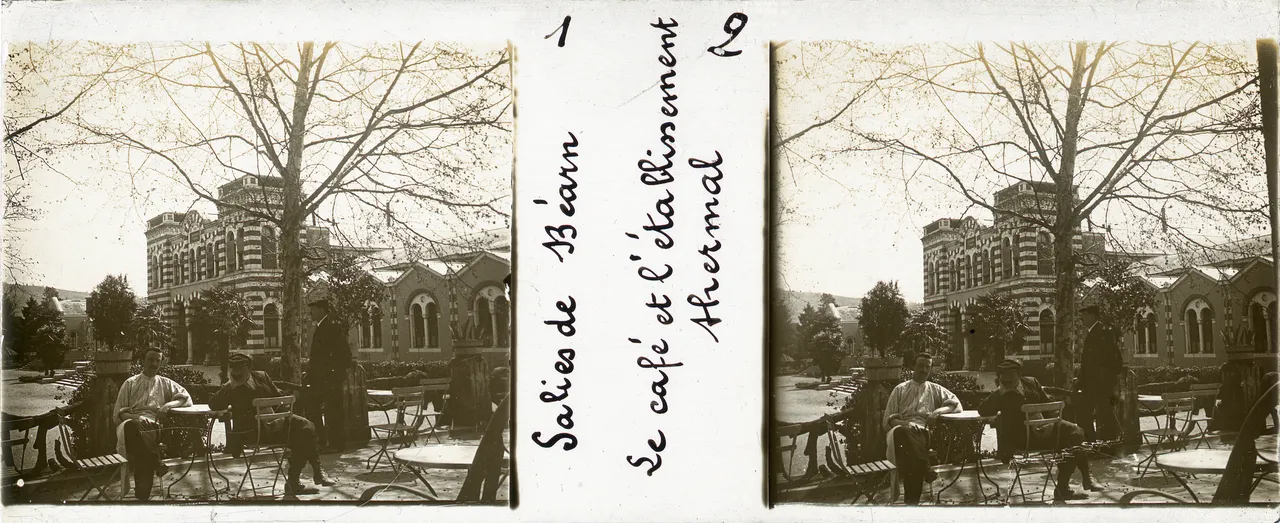 1
Salies de Béarn
Le café et l'établissement
thermal